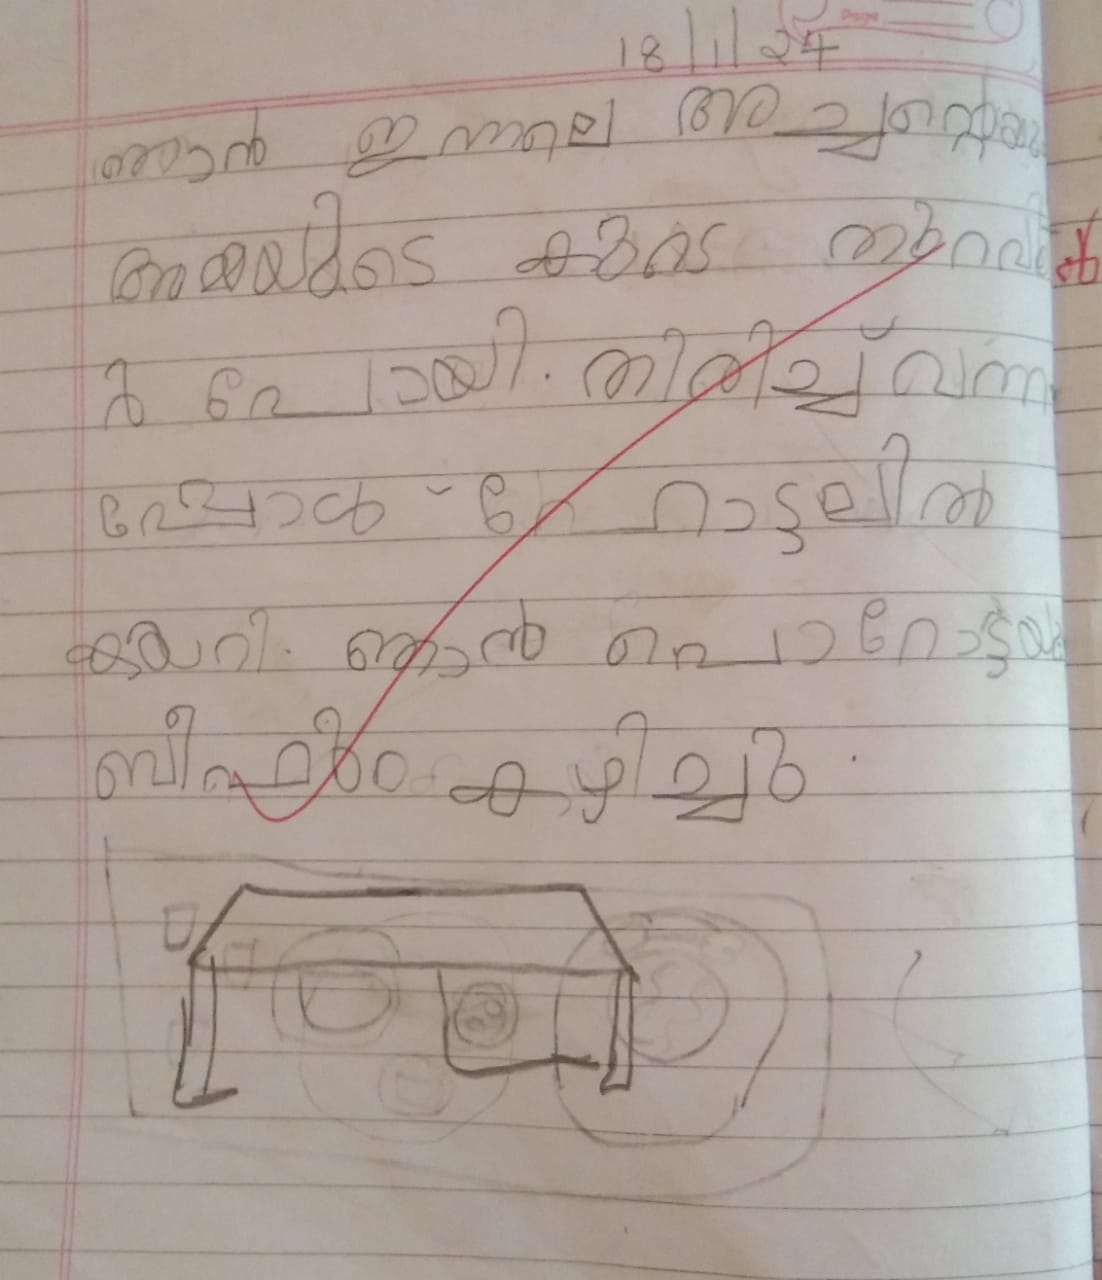 18/1/24
ഞാൻ ഇന്നലെ അച്ഛന്റെയും
അമ്മയുടെ കൂടെ തുറവൂ
ർ പോയി. തിരിച്ച് വന്ന
പ്പോൾ ഹോട്ടലിൽ
കയറി. ഞാൻ പൊറോട്ടയും
ബീഫും കഴിച്ചു.